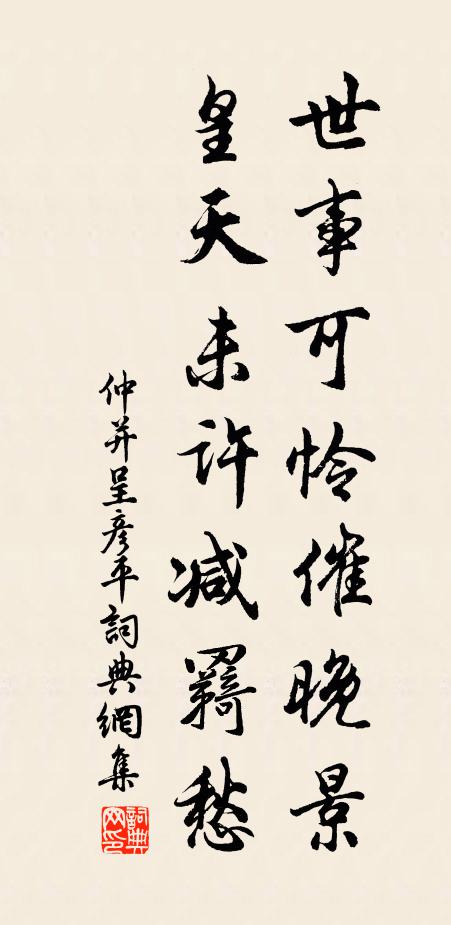 世事可怜催晚景
皇天未许减羁愁
仲并呈彦平詞典網集
詞典网印